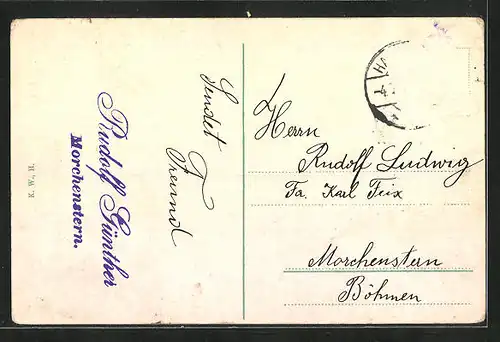 Sendet
Freund
Rudolf Günther
Morchenstern.
E. W., H.
Herrn
Rudolf Ludwig
Fa. Karl Feix
Morchenstern
Böhmen